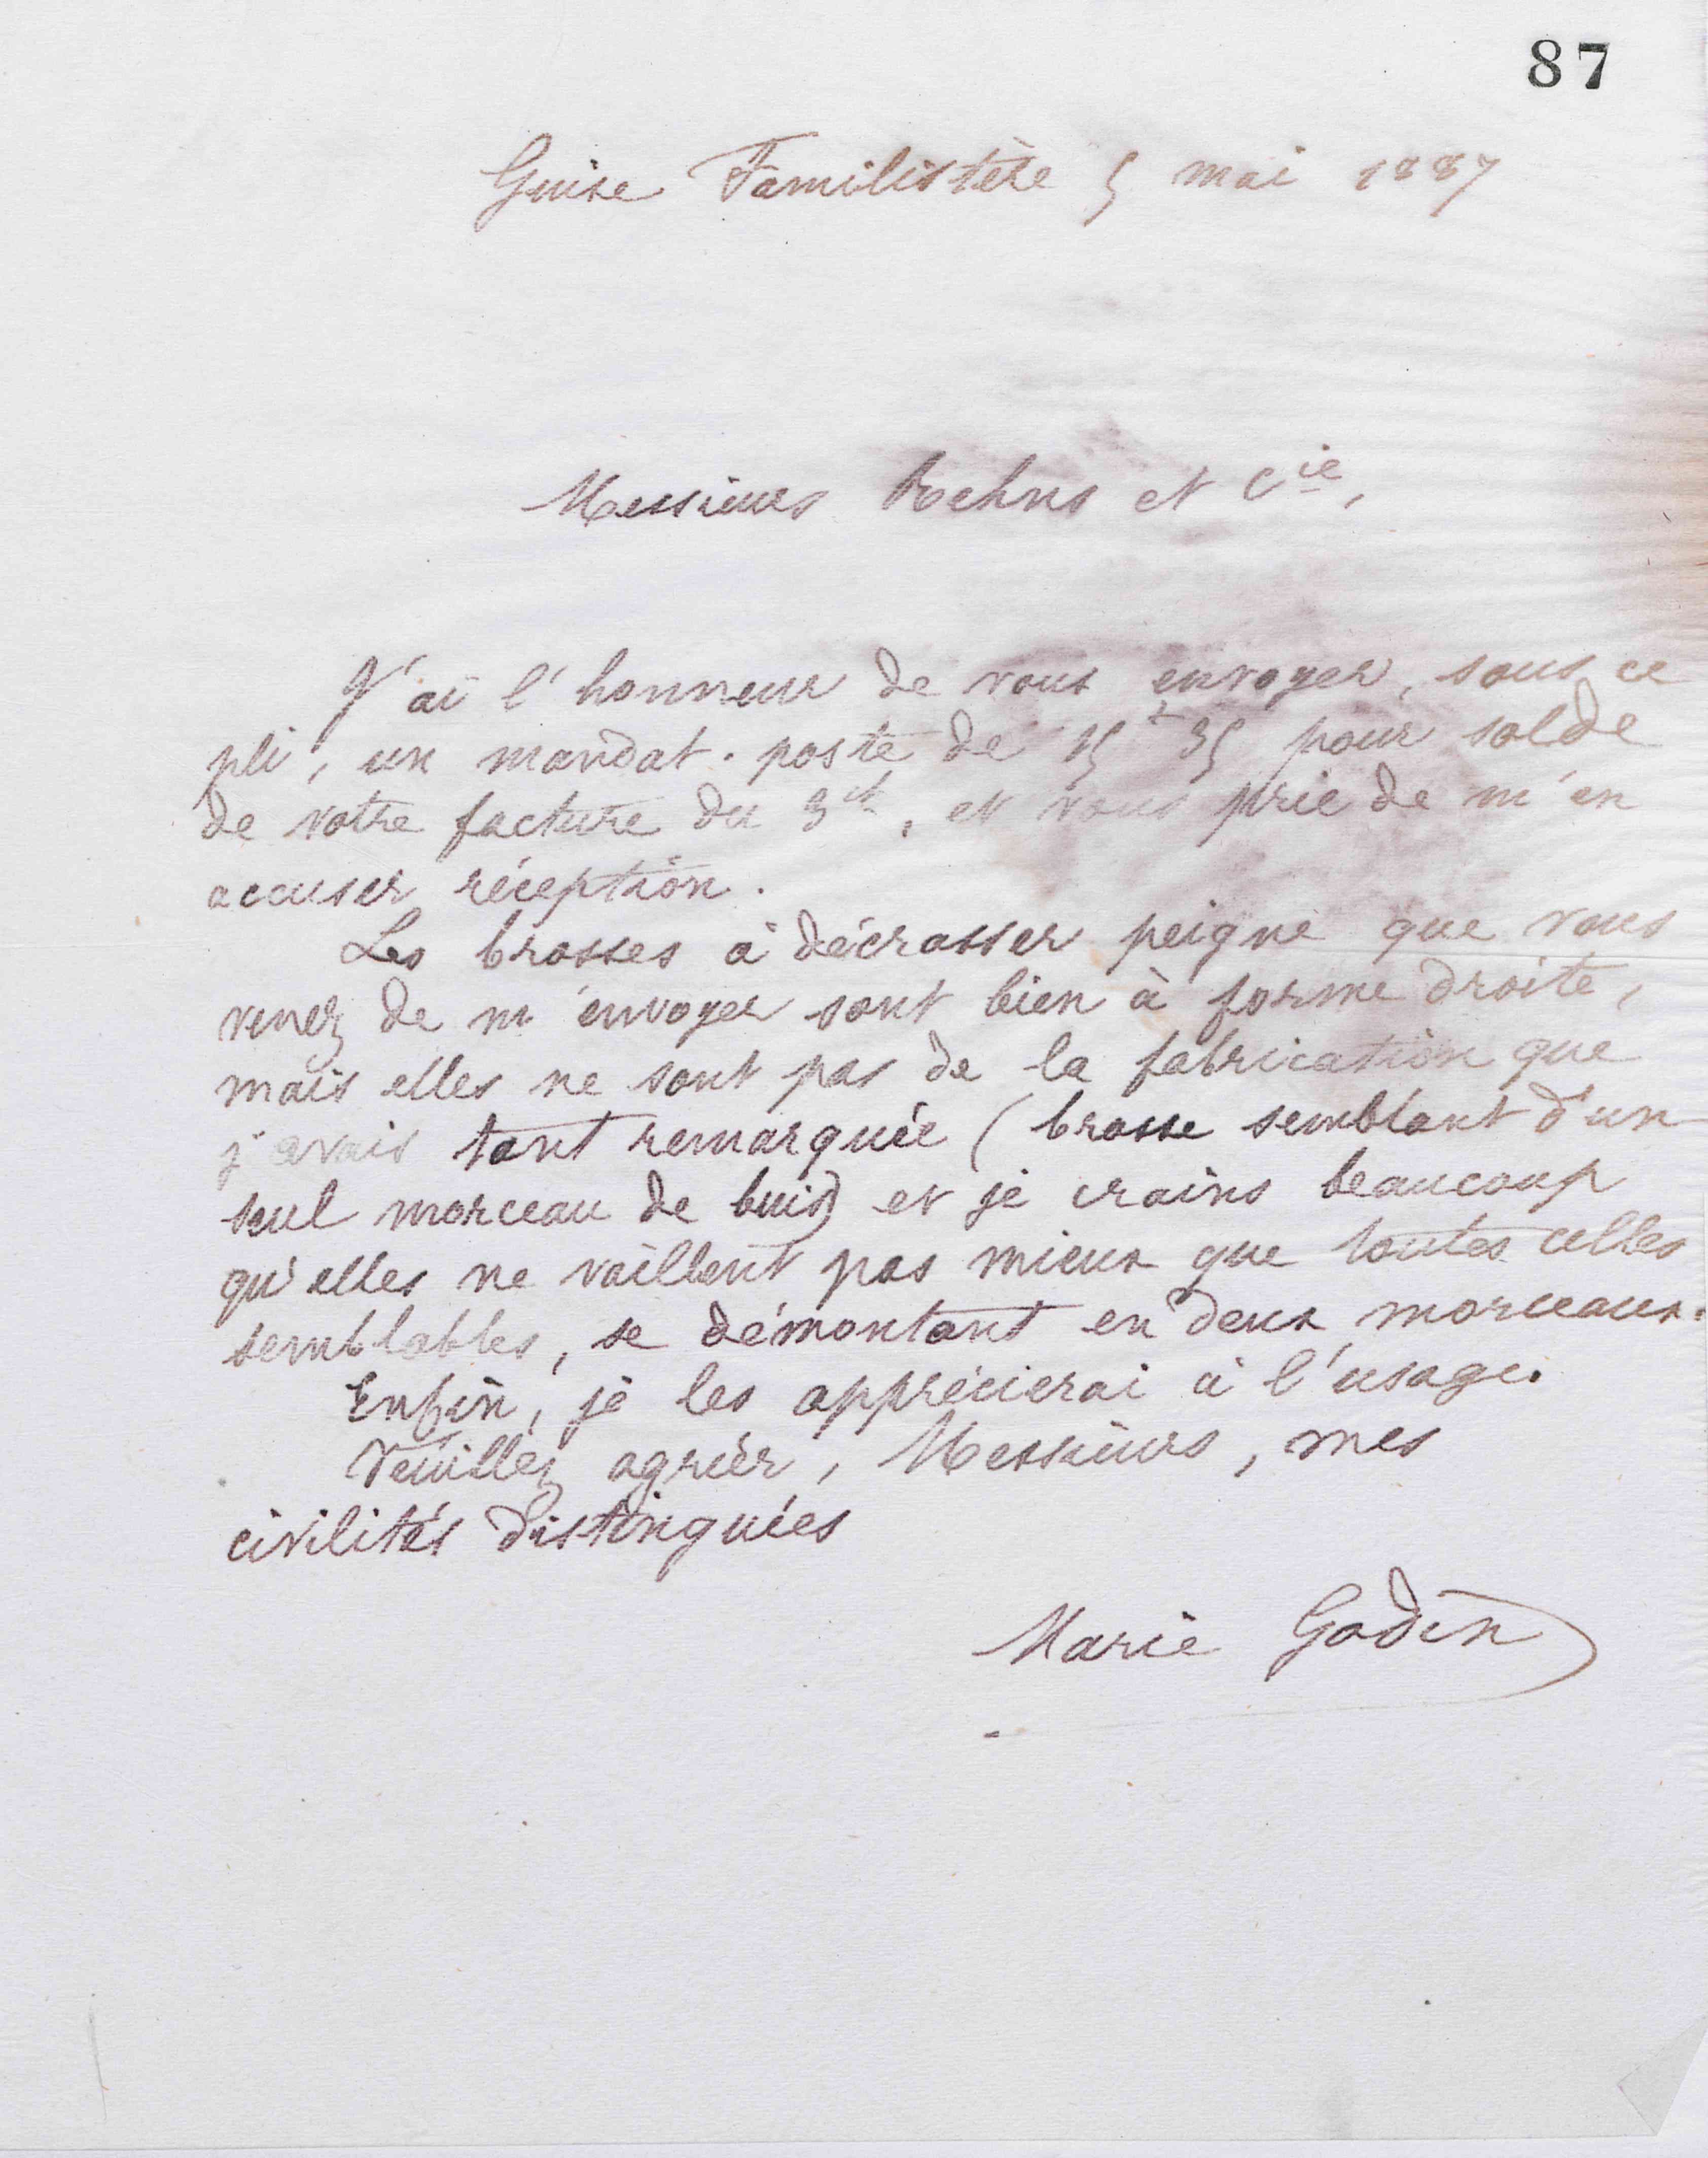 87
Guise Familistère 5 mai 1887
Messieurs Rehns et Cie,
J'ai l'honneur de vous envoyer, sous ce
pli, un mandat-poste de 15f 35 pour solde
de votre facture du 3 ct, et vous prie de m'en
accuser réception.
Les brosses à décrasser peigne que vous
venez de m'envoyer sont bien à forme droite,
mais elles ne sont pas de la fabrication que
j'avais tant remarquée (brosse semblant d'un
seul morceau de buis) et je crains beaucoup
qu'elles ne vaillent pas mieux que toutes celles
semblables, se démontant en deux morceaux.
Enfin, je les apprécierai à l'usage.
Veuillez agréer, Messieurs, mes
civilités distinguées
Marie Godin